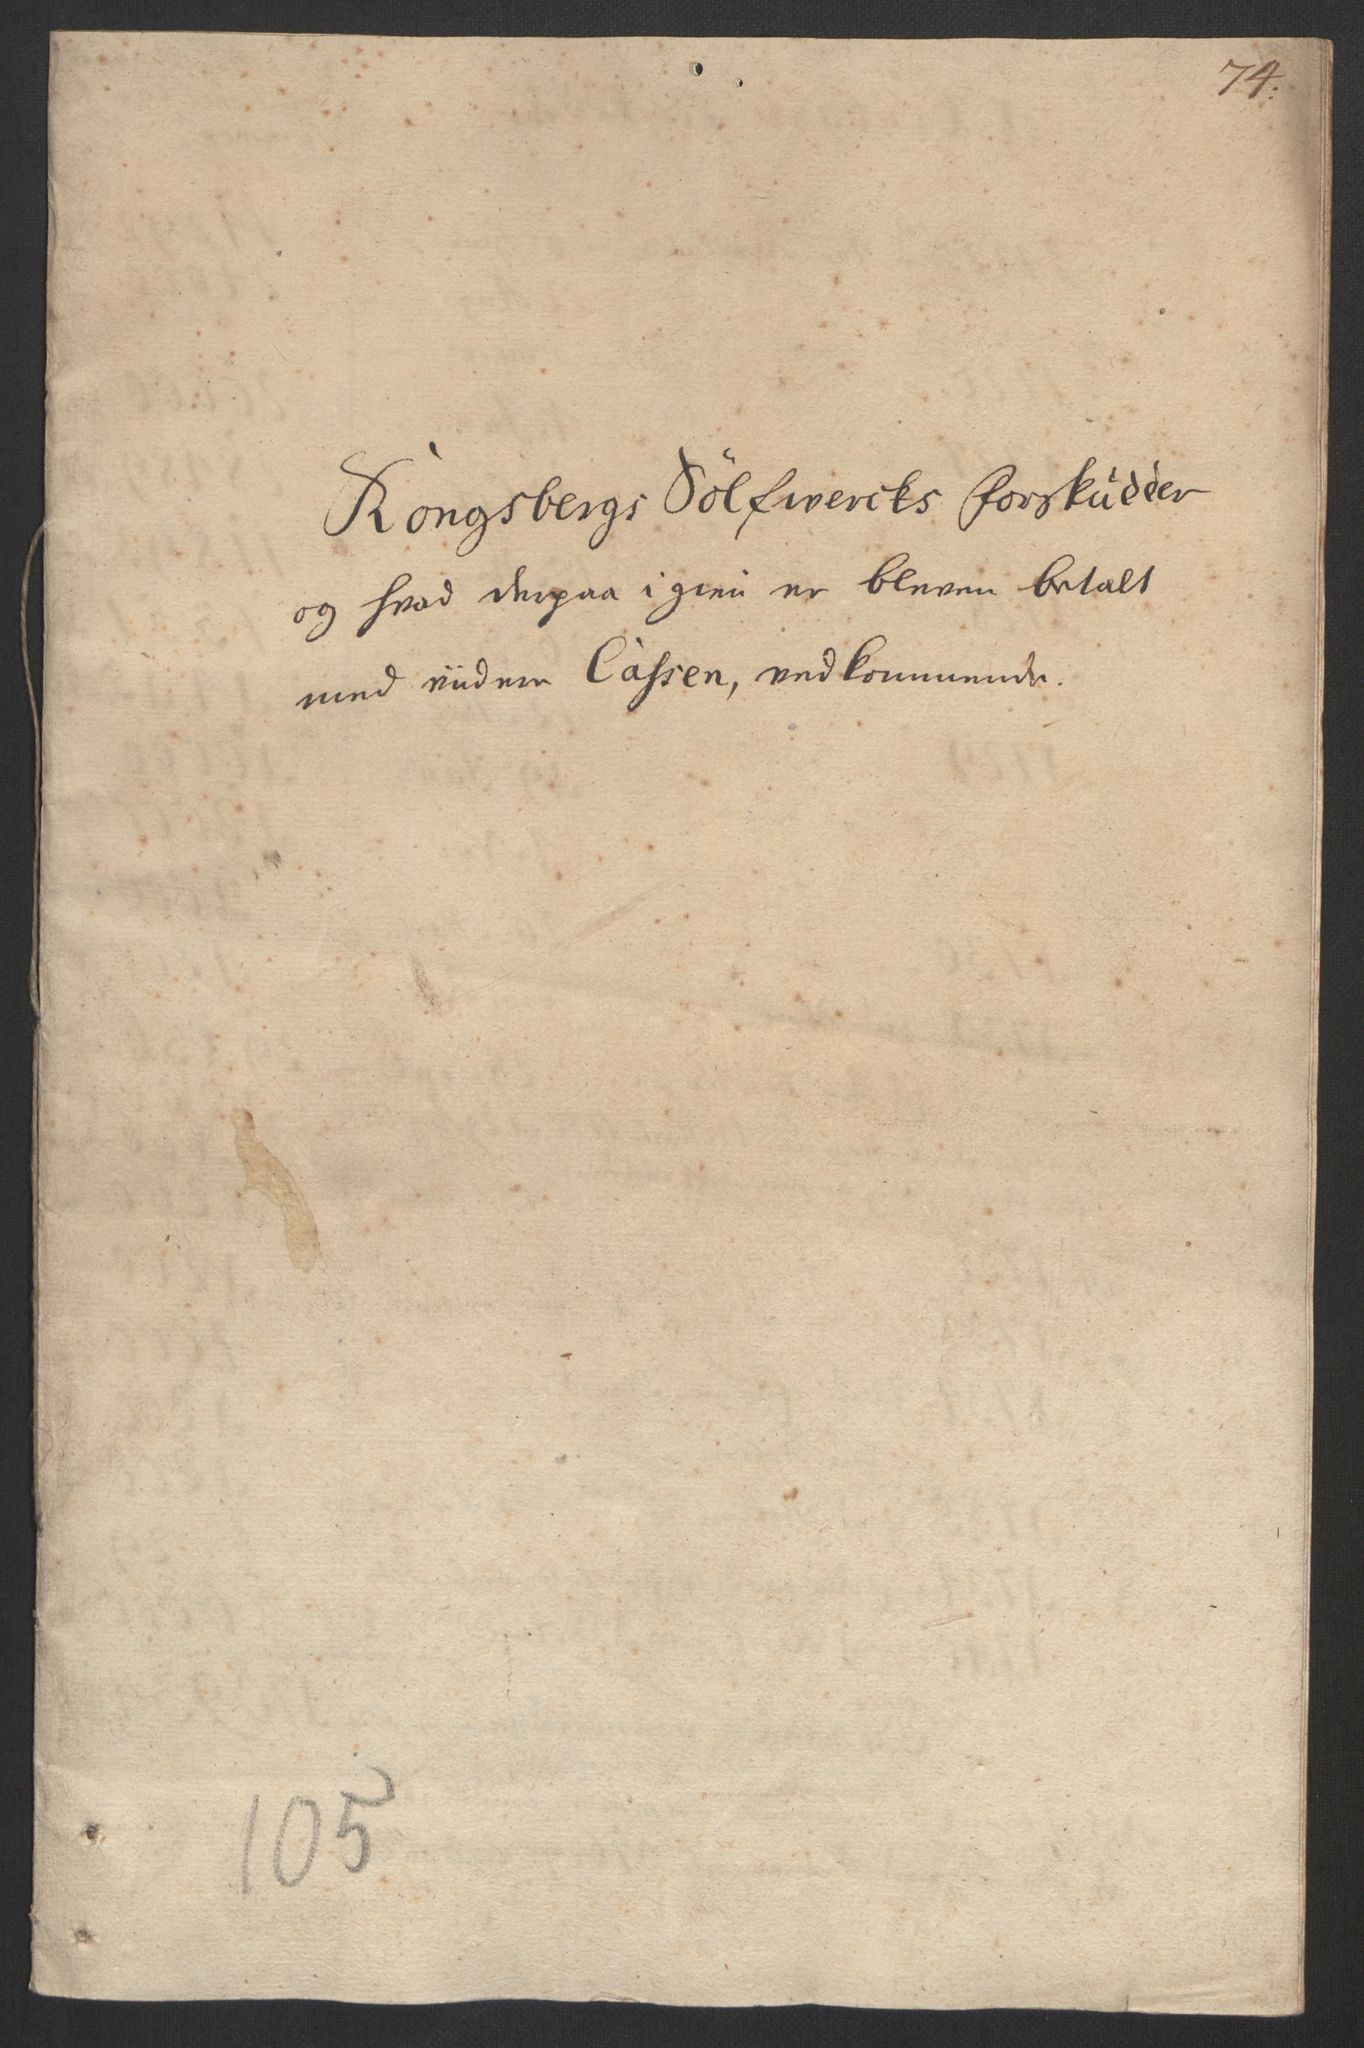 74:
Kongsbergs Sölfwercks forskudder
og hvad derpaa igien er bleven betalt
med viidere Cassen, vedkommende.
105